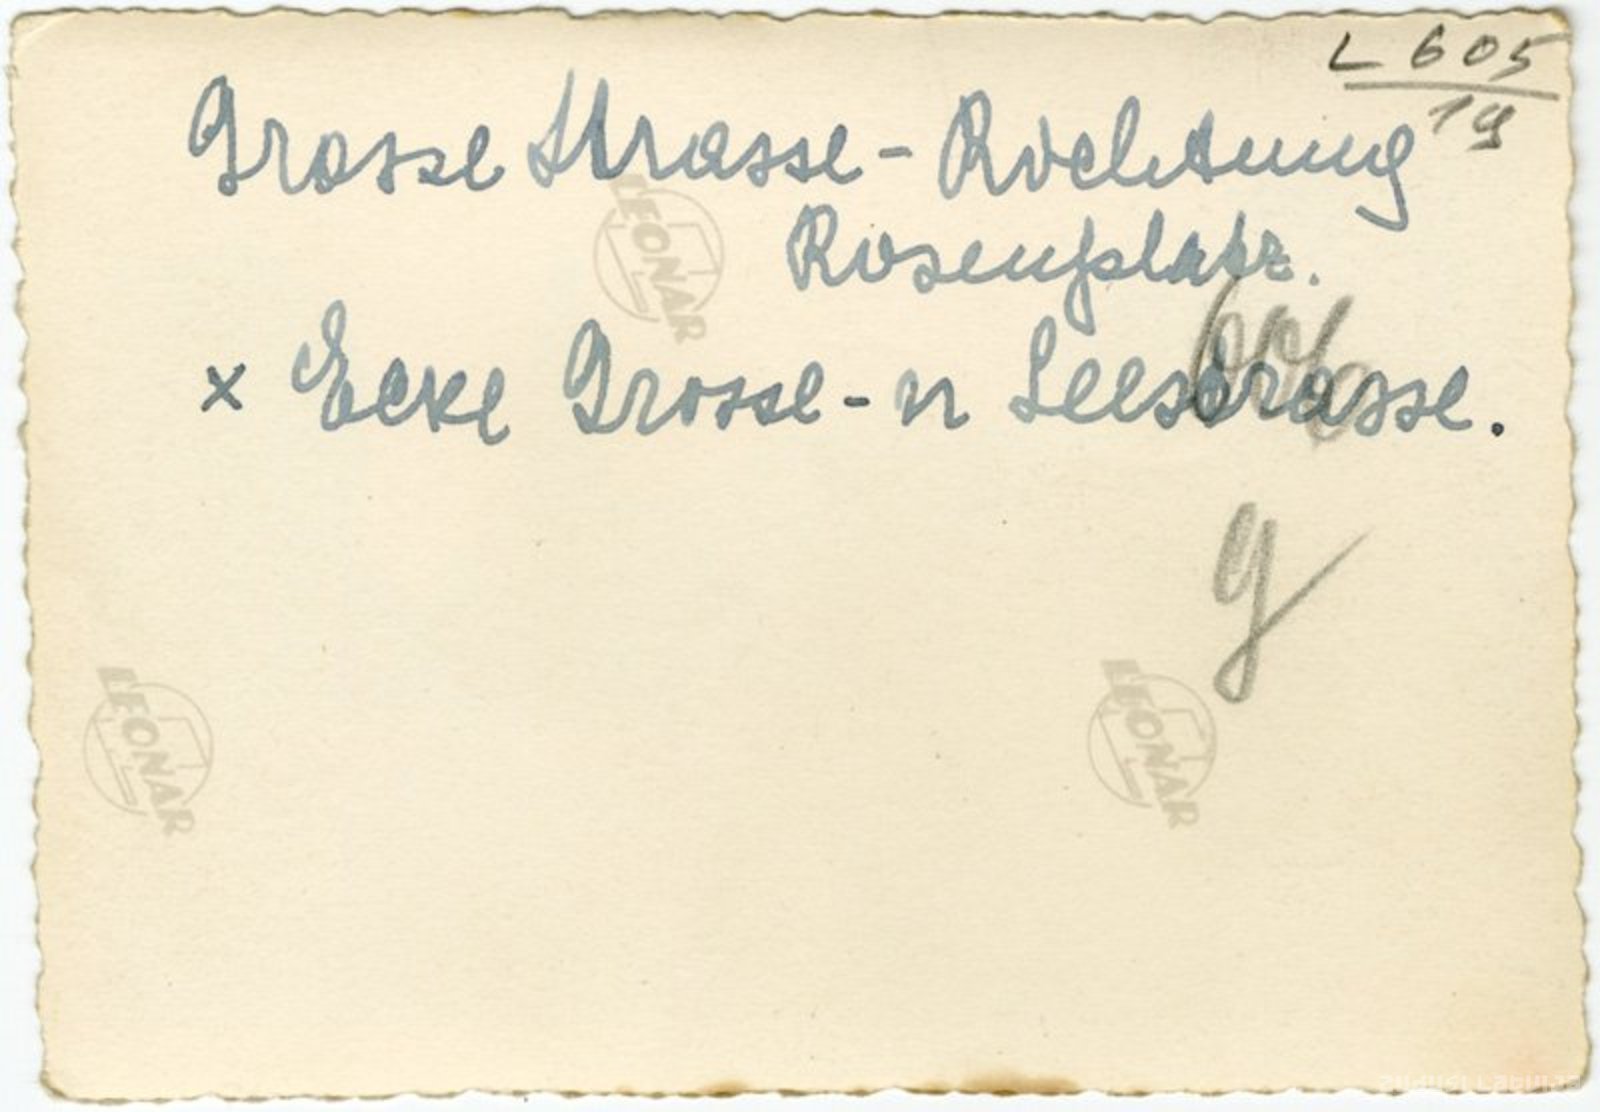 L 605
19
Grosse Strasse - Richtung
Rosenplatz.
x Ecke Grosse - u Seestrasse.
g
LEONAR
LEONAR
LEONAR